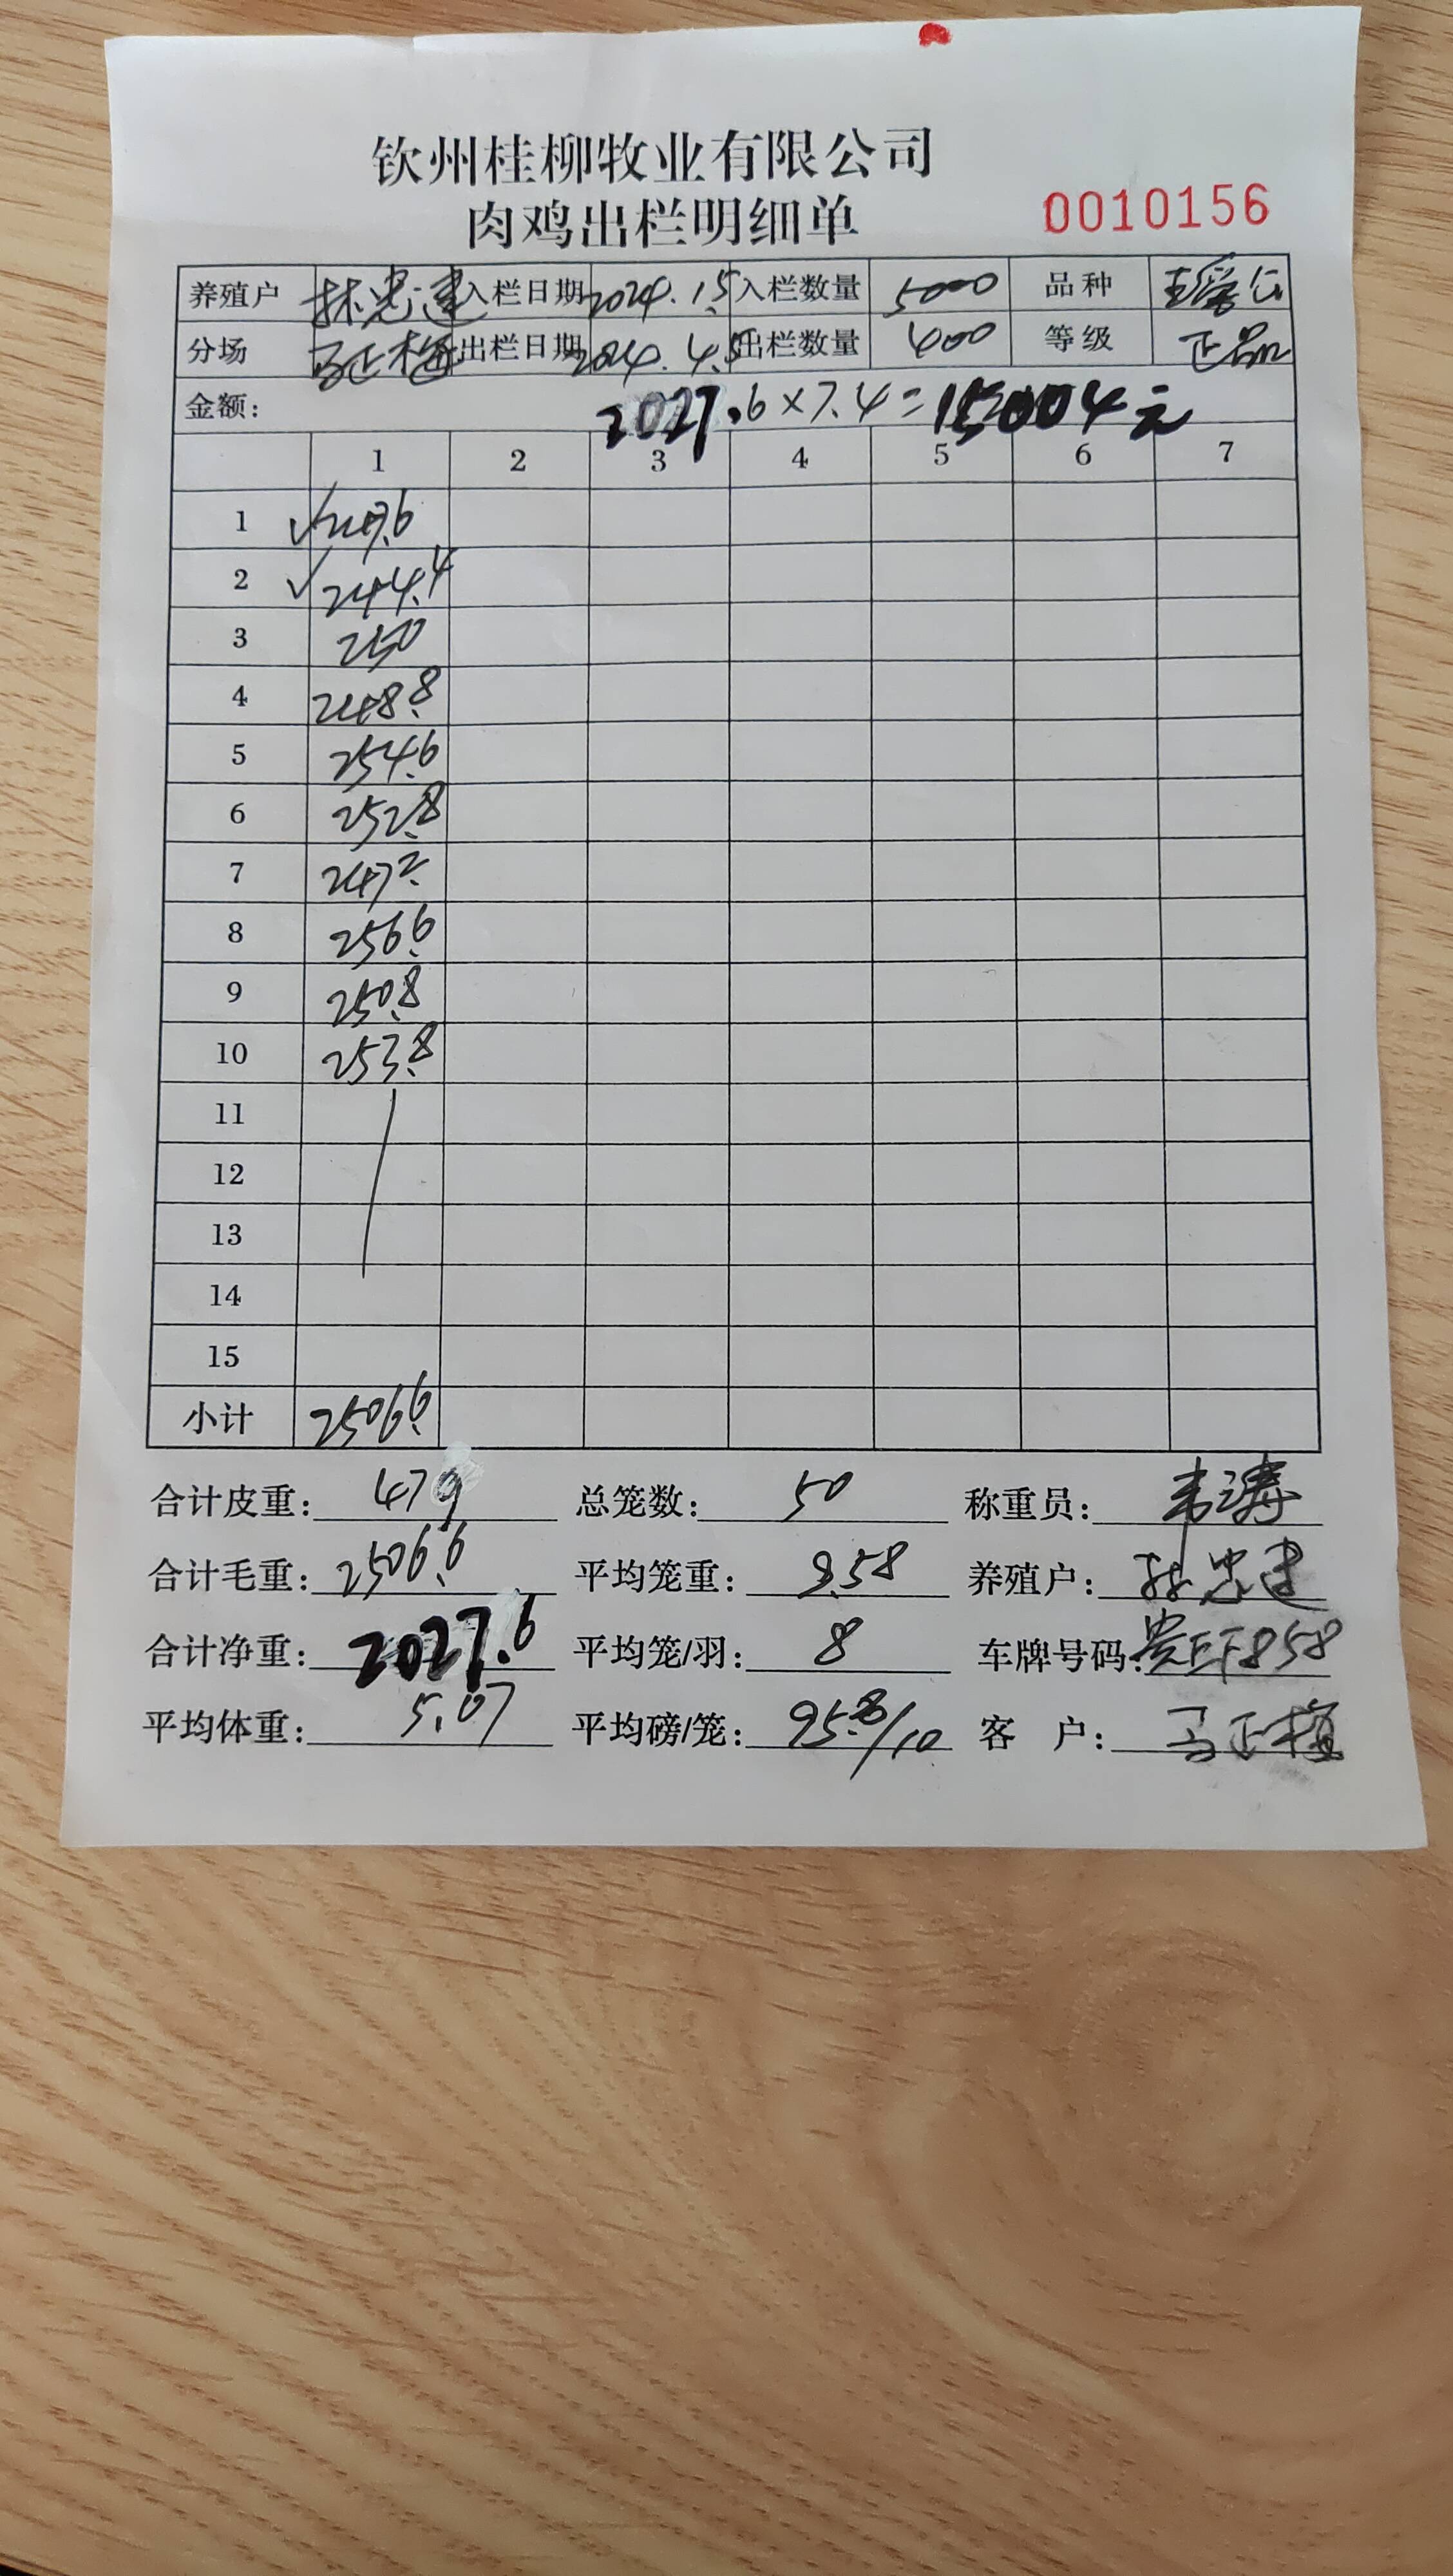 钦州桂柳牧业有限公司
肉鸡出栏明细单
0010156
养殖户 林忠建 入栏日期 2024.1.5 入栏数量 5000 品种
分场 马正梅 出栏日期 2024.4.5 出栏数量 400 等级 正品
金额: 2027.6×7.4=15004元
1 2 3 4 5 6 7
1 ✓247.6
2 ✓244.4
3 250
4 248.8
5 254.6
6 252.8
7 247.2
8 256.6
9 250.8
10 253.8
11
12
13
14
15
小计 2506.6
合计皮重: 479 总笼数: 50 称重员: 韦涛
合计毛重: 2506.6 平均笼重: 9.58 养殖户: 林忠建
合计净重: 2027.6 平均笼/羽: 8 车牌号码: 贵EF858
平均体重: 5.07 平均磅/笼: 95.8/10 客 户: 马正梅